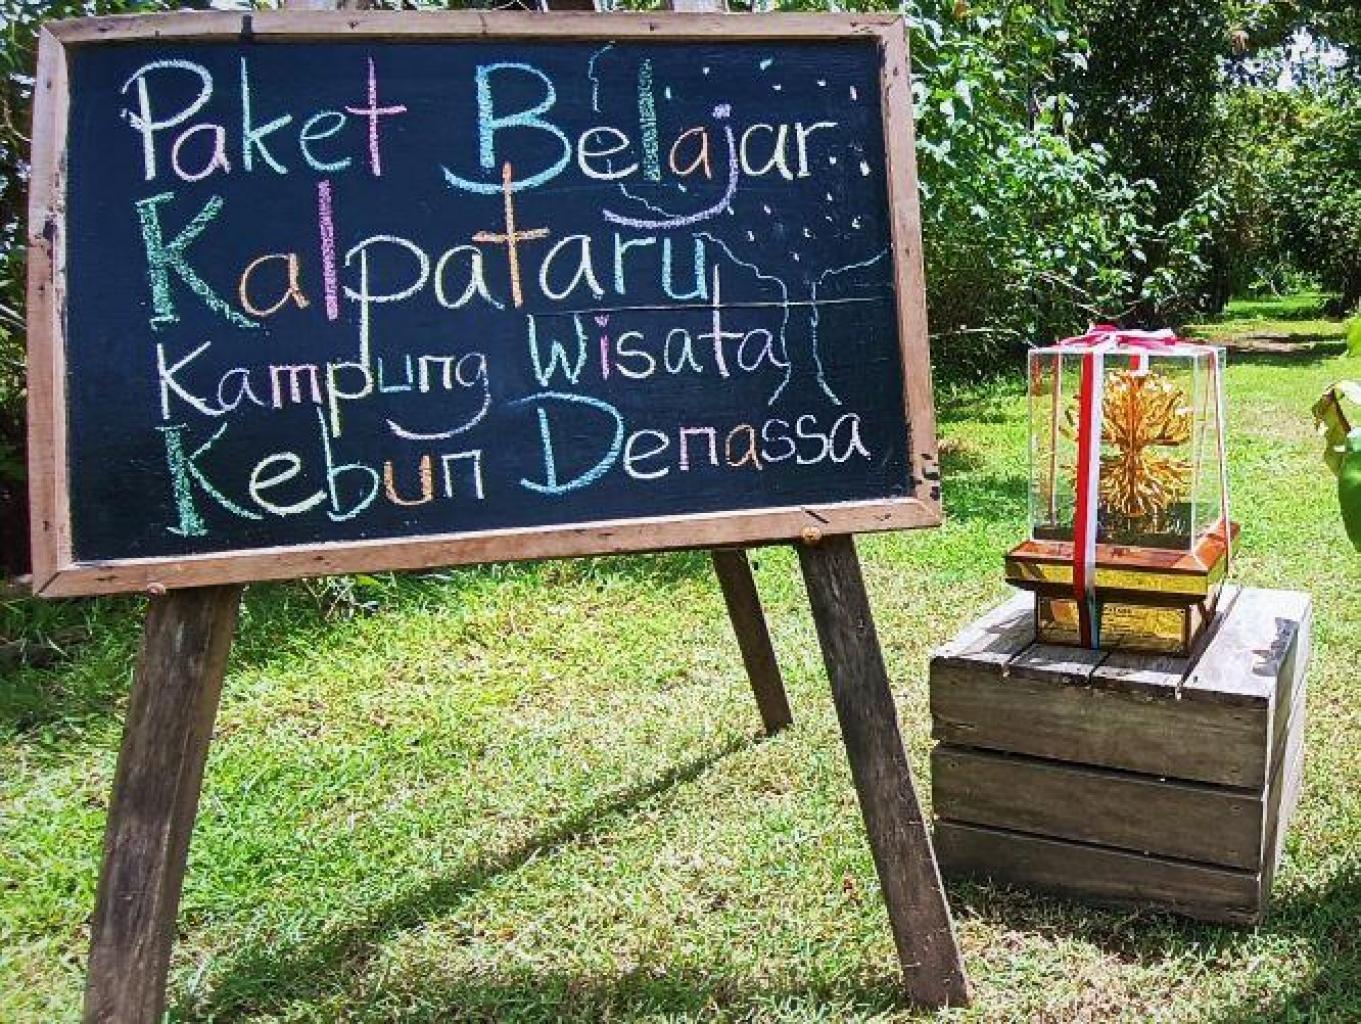 Paket Belajar
Kalpataru
Kampung Wisata
Kebun Denassa